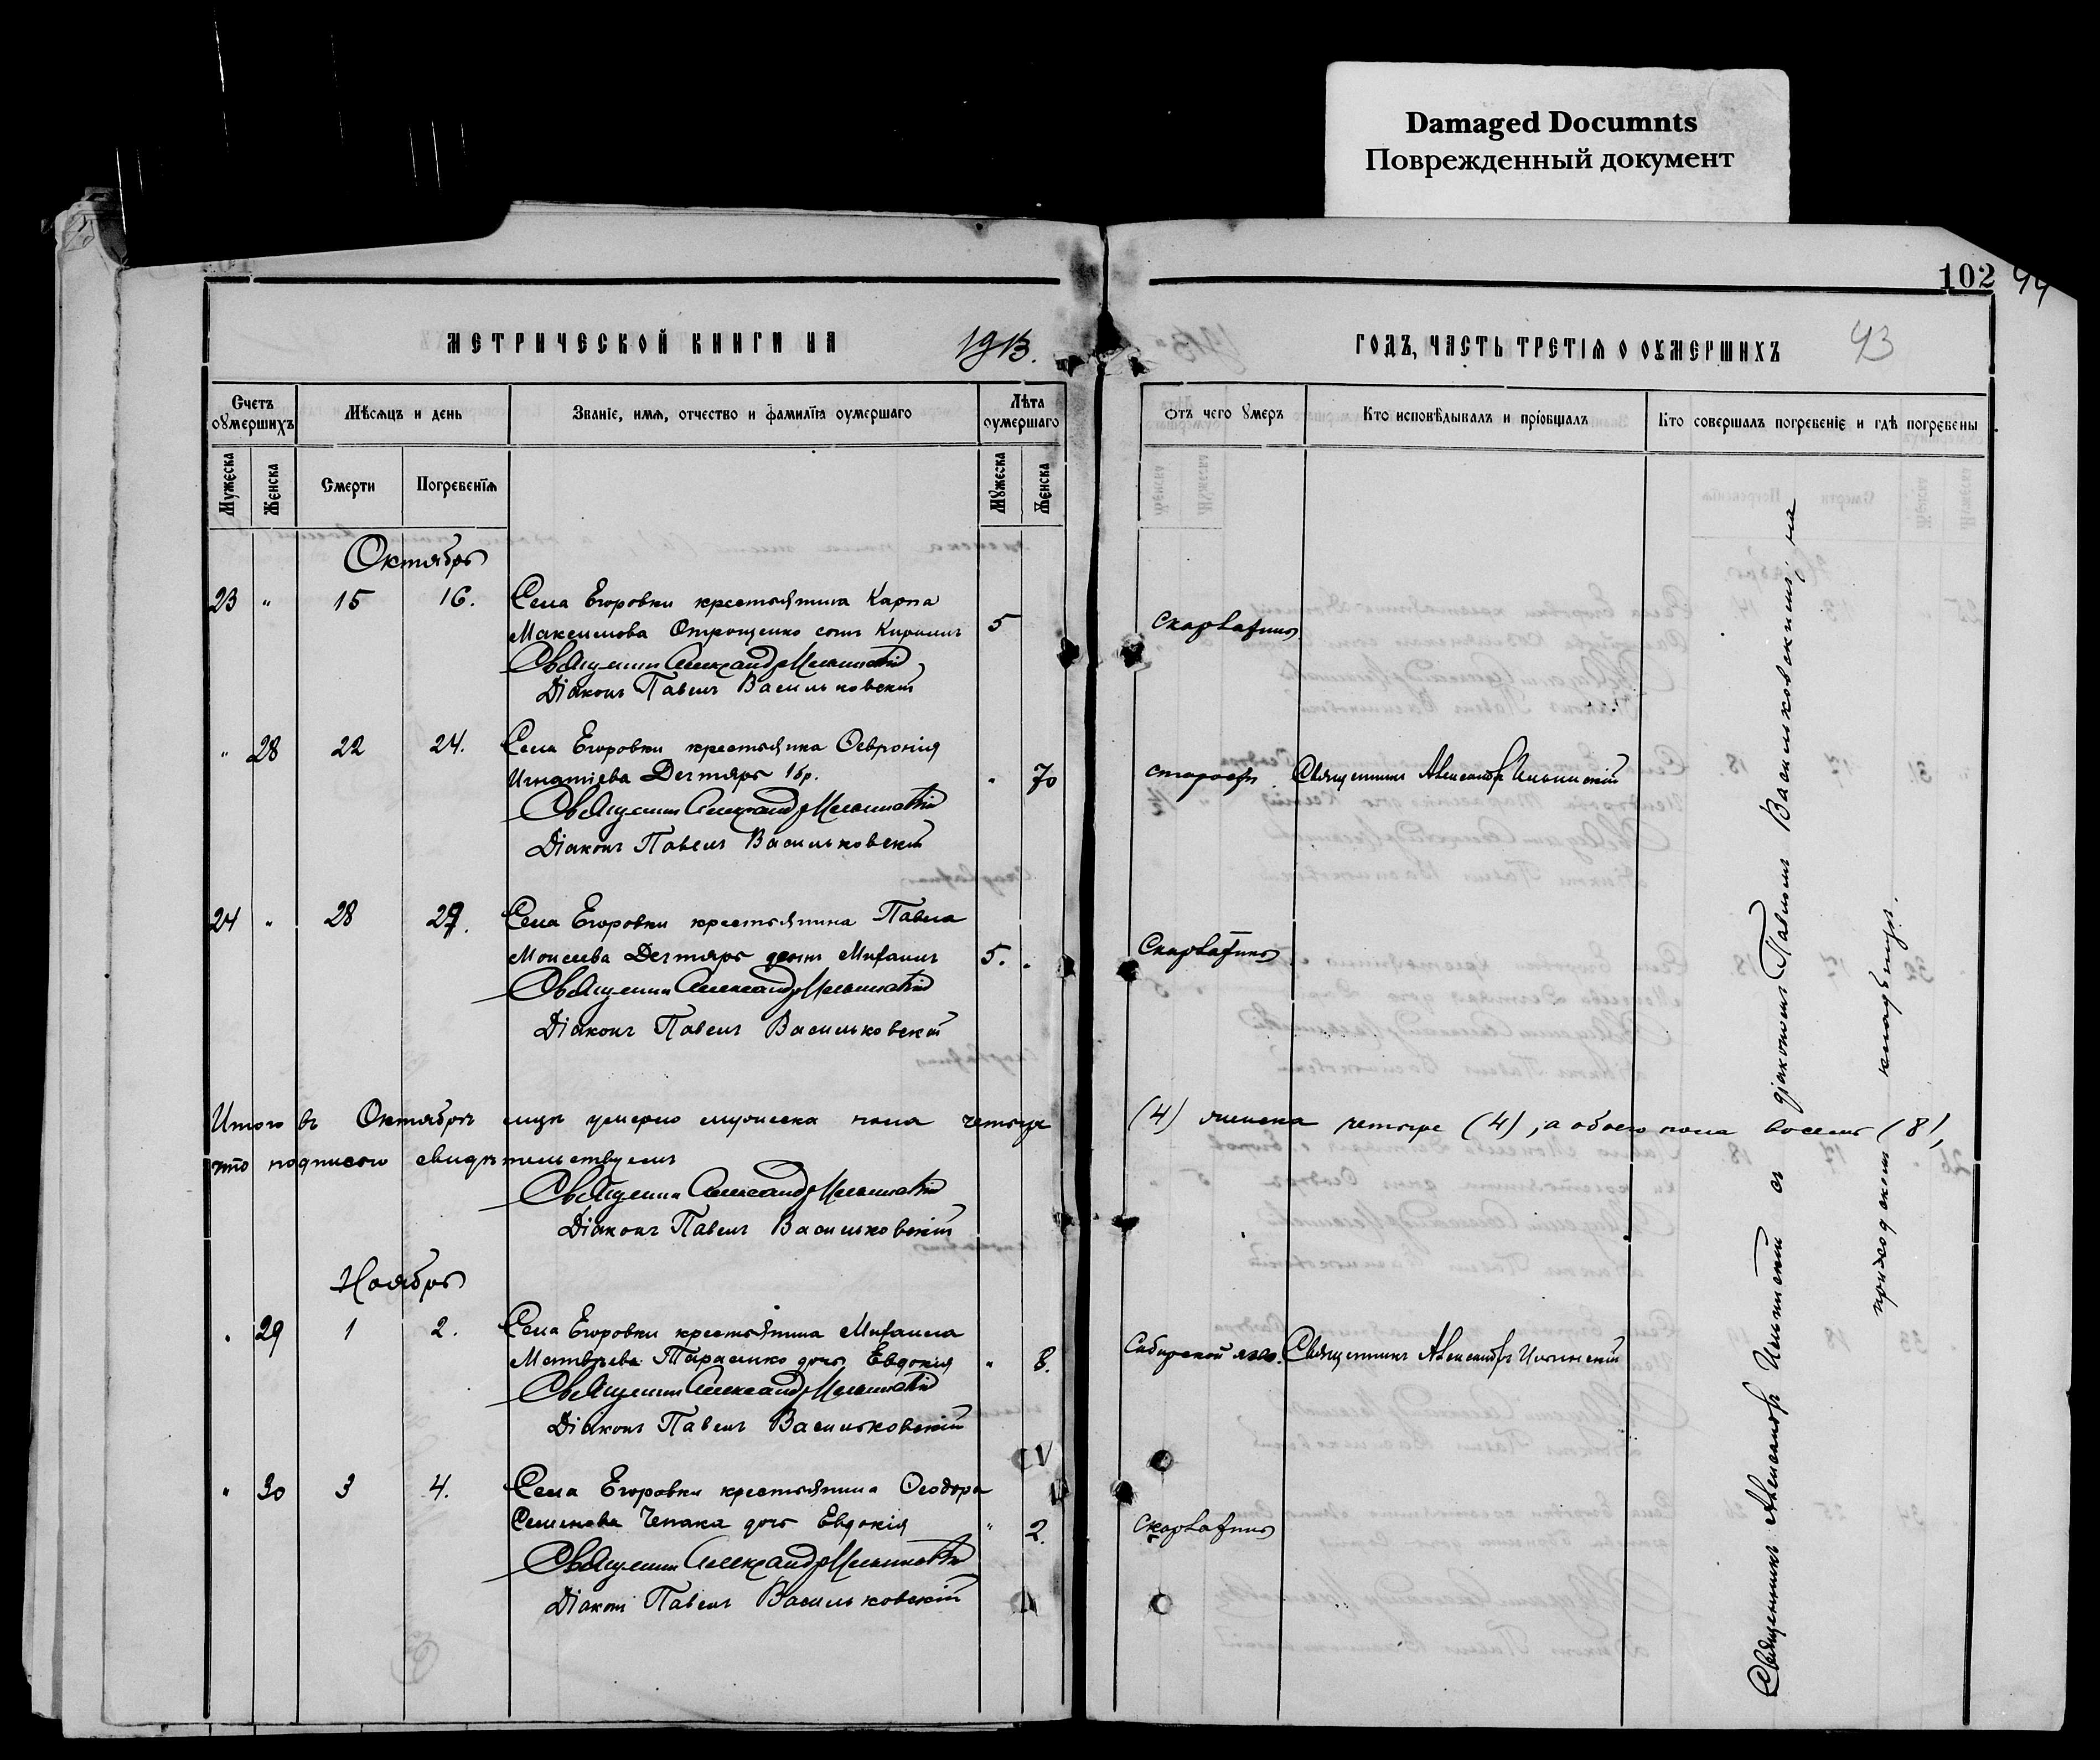 Damaged Documnts
Поврежденный документ
102 94
МЕТРИЧЕСКОЙ КНИГИ НА 1913.
ГОДЪ, ЧАСТЬ ТРЕТІЯ О ОУМЕРШИХЪ 93
Счетъ оумершихъ
Мѣсяцъ и день
Званіе, имя, отчество и фамилія оумершаго
Лѣта оумершаго
Отъ чего оумеръ
Кто исповѣдывалъ и пріобщалъ
Кто совершалъ погребеніе и гдѣ погребены
Мужеска
Женска
Смерти
Погребенія
Мужеска
Женска
Октябрь
23 " 15 16. Села Егоровки крестьянина Карпа
Максимова Отрощенко сынъ Кириллъ 5 скарлатина
Священникъ Александръ Ильинскій
Діаконъ Павелъ Васильковскій
" 28 22 24. Села Егоровки крестьянка Февронія
Игнатіева Дегтярь 1 бр. " 70 старости Священникъ Александръ Ильинскій
Священникъ Александръ Ильинскій
Діаконъ Павелъ Васильковскій
24 " 28 29. Села Егоровки крестьянина Павла
Моисеева Дегтярь сынъ Михаилъ 5. " Скарлатина
Священникъ Александръ Ильинскій
Діаконъ Павелъ Васильковскій
Итого въ Октябрѣ м-цѣ умерло мужеска пола четыре (4) женска четыре (4), а обоего пола восемь (8),
что подписью свидѣтельствуемъ
Священникъ Александръ Ильинскій
Діаконъ Павелъ Васильковскій
Ноябрь
" 29 1 2. Села Егоровки крестьянина Михаила
Матвѣева Тарасенко дочь Евдокія " 8. Сибирской язв. Священникъ Александръ Ильинскій
Священникъ Александръ Ильинскій
Діаконъ Павелъ Васильковскій
" 30 3 4. Села Егоровки крестьянина Ѳеодора
Семенова Чепака дочь Евдокія " 2. Скарлатина
Священникъ Александръ Ильинскій
Діаконъ Павелъ Васильковскій
Священникъ Александръ Ильинскій съ діакономъ Павломъ Васильковскимъ, на
приходскомъ кладбищѣ.